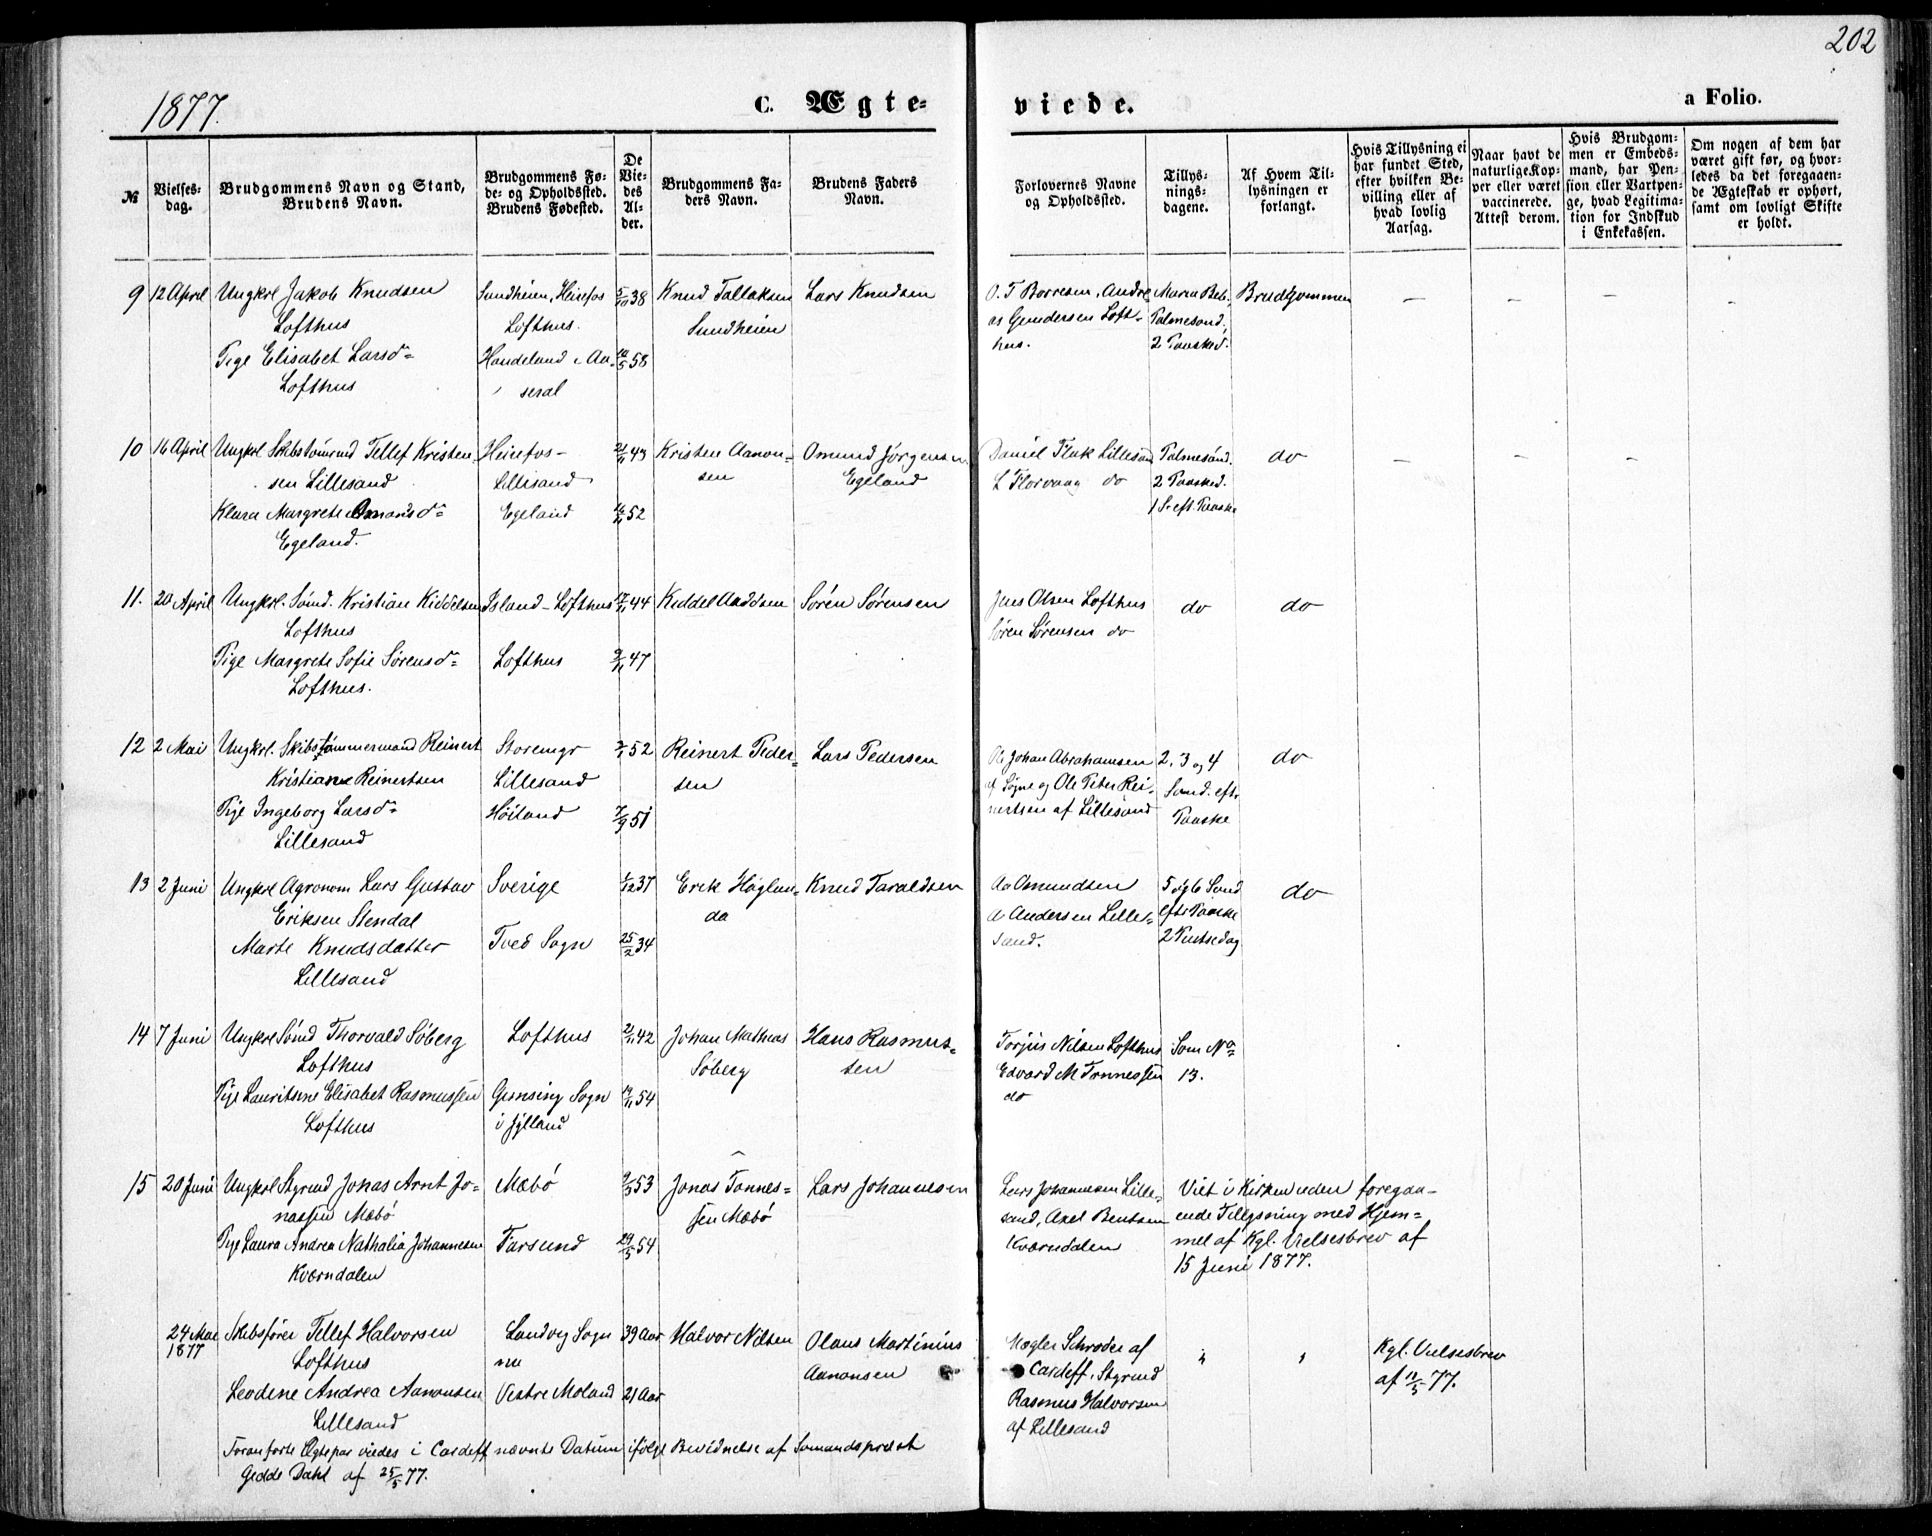 202
1877.
C. Ægte-
viede.
a Folio.
№
Vielses-
dag.
Brudgommens Navn og Stand,
Brudens Navn.
Brudgommens Fø-
de- og Opholdssted.
Brudens Fødested.
De
Vie-
des
Al-
der.
Brudgommens Fa-
ders Navn.
Brudens Faders
Navn.
Forlovernes Navne
og Opholdssted.
Tillys-
nings-
dagene.
Af Hvem Til-
lysningen er
forlangt.
Hvis Tillysning ei
har fundet Sted,
efter hvilken Be-
villing eller af
hvad lovlig
Aarsag.
Naar havt de
naturlige Kop-
per eller været
vaccinerede.
Attest derom.
Hvis Brudgom-
men er Embeds-
mand, har Pen-
sion eller Vartpen-
ge, hvad Legitima-
tion for Indskud
i Enkekassen.
Om nogen af dem har
været gift før, og hvor-
ledes da det foregaaen-
de Ægteskab er ophørt,
samt om lovligt Skifte
er holdt.
9 12 April Ungkrl Jakob Knudsen
Lofthus
Tige Elisabet Larsd=
Lofthus
Sundheien, Heirefos
Lofthus.
Haudeland i Aa-
seral
5/10 38
10/5 58
Knud Tallaksen
Sundheim
Lars Knudsen
O. T Borresen, Andre
as Gundersen Loft-
hus.
Maria Beb.
Palmesønd.
2 Paasked.
Brudgommen
— — — —
10 16 April Ungkrl Skibstømrmd Tellef Kristen
sen Lillesand
Klara Margrete Omonsd=
Egeland.
Heirefos-
Lillesand
Egeland
21/11 43
14/11 52
Kristen Aanon-
sen
Omund Jörgensen
Egeland
Daniel Fluk Lillesan
L Florvaag do
Palmesönd.
2 Paasked.
1 S. eft. Paaske
do
— — — —
11. 20 April Ungkrl. Sömd. Kristian Kiddelsen
Lofthus
Tige Margrete Sofie Sørensd=
Lofthus.
Island - Lofthus
Lofthus
17/11 44
9/11 47
Kiddel Anddsen
Sørèn Sørensen
Jens Olsen Lofthus
Sören Sørensen do
do
do
12 2 Mai Ungkrl. Skibstömmermand Reinert
Kristian Reinertsen
Tige Ingeborg Larsd=
Lillesand
Storemyr
Lillesand
Höiland
2/1 52
7/9 51
Reinert Peder-
sen
Lars Pedersen
Ole Johan Abrahamsen
af Søgne og Ole Peter Rei-
nertsen af Lillesand
2, 3 og 4
Sønd. eftr
Paaske
do
13 2 Juni Ungkrl Agronom Lars Gustav
Eriksen Stendal
Marte Knudsdatter
Lillesand
Sverige
Tved Sogn
1/12 37
25/2 34
Erik Höglun-
da
Knud Taraldsen
Aa Omundsen
A Andersen Lille-
sand.
5 og 6 Sønd
eftr Paaske
2 Pintsedag
do
14 7 Juni Ungkrl Sömd Thorvald Söberg
Lofthus
Pige Lauritsine Elisabet Rasmussen
Lofthus
Lofthus
Gimsing Sogn
i Jylland
21/11 42
19/11 54
Johan Mathias
Söberg
Hans Rasmus-
sen
Torjus Nilsen Lofthus
Edvard M Tønnessen
do
Som No
13.
15 20 Juni Ungkrl Styrmd Jonas Arnt Jo-
nassen Mæbö
Pige Laura Andrea Nathalia Johannesen
Kværndalen
Mæbö
Farsund
9/5 53
29/5 54
Jonas Tønnes-
sen Mæbö
Lars Johannesen
Lars Johannesen Lille-
sand, Axel Bentsen
Kværndalen
Viet i Kirken uden foregaa-
ende Tillysning med Hjem-
mel af Kgl. Vielsesbrev af
15 Juni 1877.
24 Mai
1877
Skibsfører Tellef Halvorsen
Lofthus
Leodene Andrea Aanonsen
Lillesand
Landvig Sogn
nu
Vestre Moland
39 Aar
21 Aar
Halvor Nilsen
Olaus Martinius
Aanonsen
Mægler Schrøder af
Cardeff, Styrmd
Rasmus Halvorsen
af Lillesand
Kgl. Vielsesbrev
af 11/5 77.
Foranførte Ægtepar viedes i Cardeff nævnte Datum ifølge Bevidnelse af Sømandsprest
Gedde Dahl af 25/5 77.